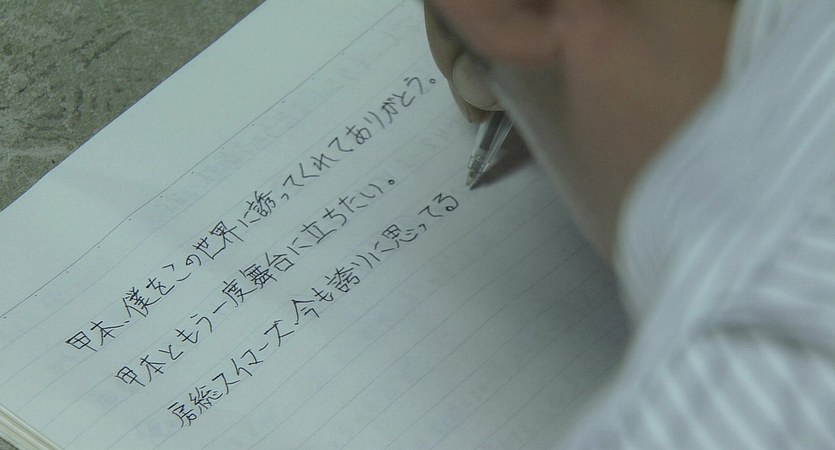 甲本、僕をこの世界に誘ってくれてありがとう。
甲本ともう一度舞台に立ちたい。
房総スイマーズ、今も誇りに思ってる